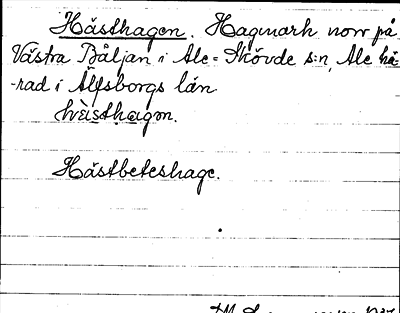 Hästhagen. Hagmark norr på
Västra Båljan i Ale-Skövde s:n, Ale hä-
-rad i Älfsborgs län
hὲsthagøn.
Hästbeteshage.